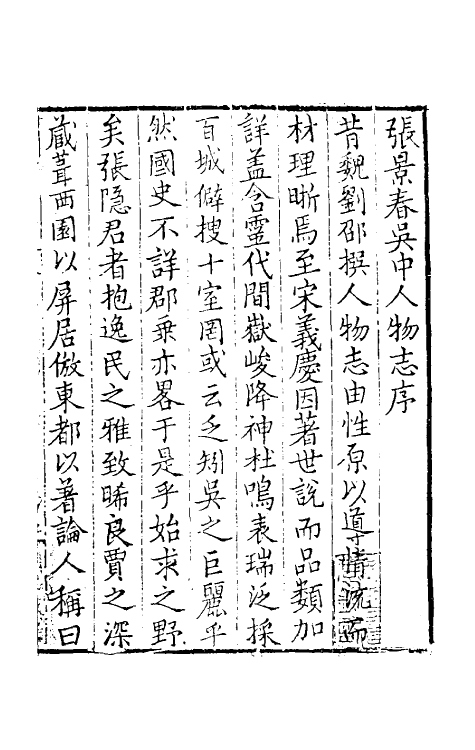 張景春吳中人物志序
昔魏劉邵撰人物志由性原以導情流而
材理晣焉至宋義慶因著世說而品類加
詳盖含霊代間嶽峻降神杜鳴表瑞泛採
百城僻搜十室罔或云乏矧吳之巨麗乎
然國史不詳郡乗亦畧于是乎始求之野
矣張隐君者抱逸民之雅致晞良賈之深
蔵葺西園以屏居倣東都以著論人稱曰